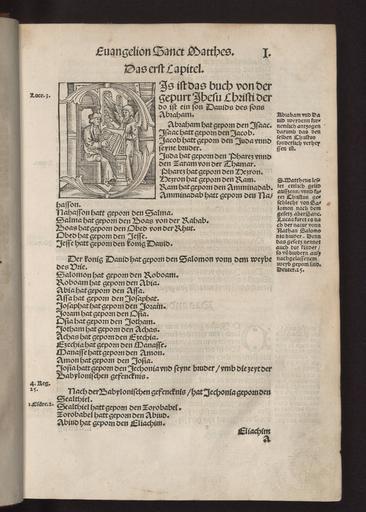 Euangelion Sanct Matthes. I.
Das erst Capitel.
Luce. 3.
Is ist das buch von der
gepurt Jhesu Christi der
do ist ein son Dauids des sons
Abraham.
Abraham hat geporn den Isaac.
Isaac hatt geporn den Jacob.
Jacob hatt geporn den Juda vnnd
seyne bruder.
Juda hat geporn den Phares vnnd
den Zaram von der Thamar.
Phares hat geporn den Hezron.
Hezron hatt geporn den Ram.
Ram hat geporn den Amminadab.
Amminadab hatt geporn den Na/
hasson.
Nahasson hatt geporn den Salma.
Salma hat geporn den Boas von der Rahab.
Boas hat geporn den Obed von der Rhut.
Obed hat geporn den Jesse.
Jesse hatt geporn den konig Dauid.
Abraham vnd Da
uid werden fur
nemlich antzogen
darumb das den
selben Christus
sonderlich verhey
ssen ist.
S. Mattheus
Der konig Dauid hat geporn den Salomon vonn dem weybe
des Vrie.
Salomon hat geporn den Roboam.
Roboam hat geporn den Abia.
Abia hat geporn den Assa.
Assa hat geporn den Josaphat.
Josaphat hat geporn den Joram.
Joram hat geporn den Osia.
Osia hat geporn den Jotham.
Jotham hat geporn den Achas.
Achas hat geporn den Ezechia.
Ezechia hat geporn den Manasse.
Manasse hatt geporn den Amon.
Amon hat geporn den Josia.
Josia hatt geporn den Jechonia vnd seyne bruder / vmb die zeyt der
Babylonischen gefencknis.
4. Reg.
25.
Nach der Babylonischen gefencknis / hat Jechonia geporn den
Sealthiel.
Sealthiel hatt geporn den Zorobabel.
Zorobabel hatt geporn den Abiud.
Abiud hat geporn den Eliachim.
Eliachim
A